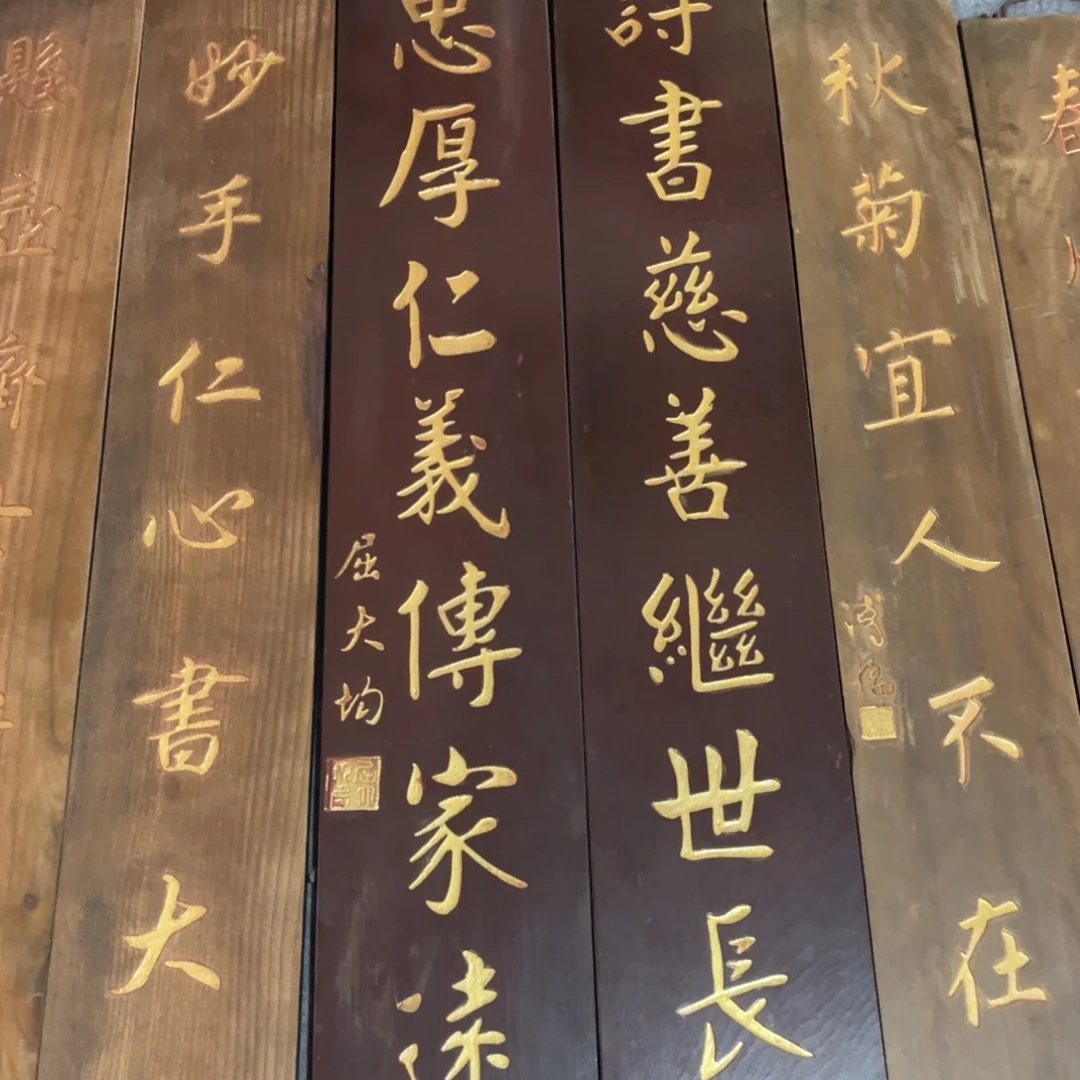 春
秋菊宜人不在
詩書慈善繼世長
忠厚仁義傳家遠
屈大均
妙手仁心書大
懸壺濟